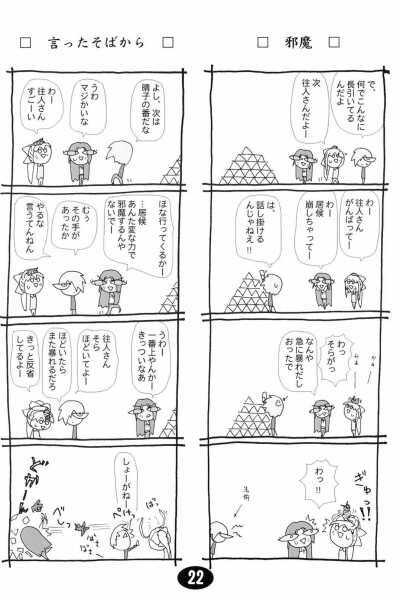 □ 邪魔 □
で、
何でこんなに
長引いてる
んだよ
次
往人さんだよー
わー
往人さん
がんばってー
わー
居候
崩しちゃってー
は、
話し掛ける
んじゃねえ!!
わっ
そらがっ
なんや
急に暴れだし
おったで
ぎゅっ!!
わっ!!
□ 言ったそばから □
よし、次は
晴子の番だな
うわ
マジかいな
わー
往人さん
すごーい
ほな行ってくるかー
…居候
あんた変な力で
邪魔するんや
ないでー
むぅ
その手が
あったか
やるな
言うてんねん
うわー
一番上やんかー
きっついなあ
往人さん
そら
ほどいてよー
ほどいたら
また暴れるだろ
きっと反省
してるよー
しょーがねー
べしっ
ばさ
ばさ
22